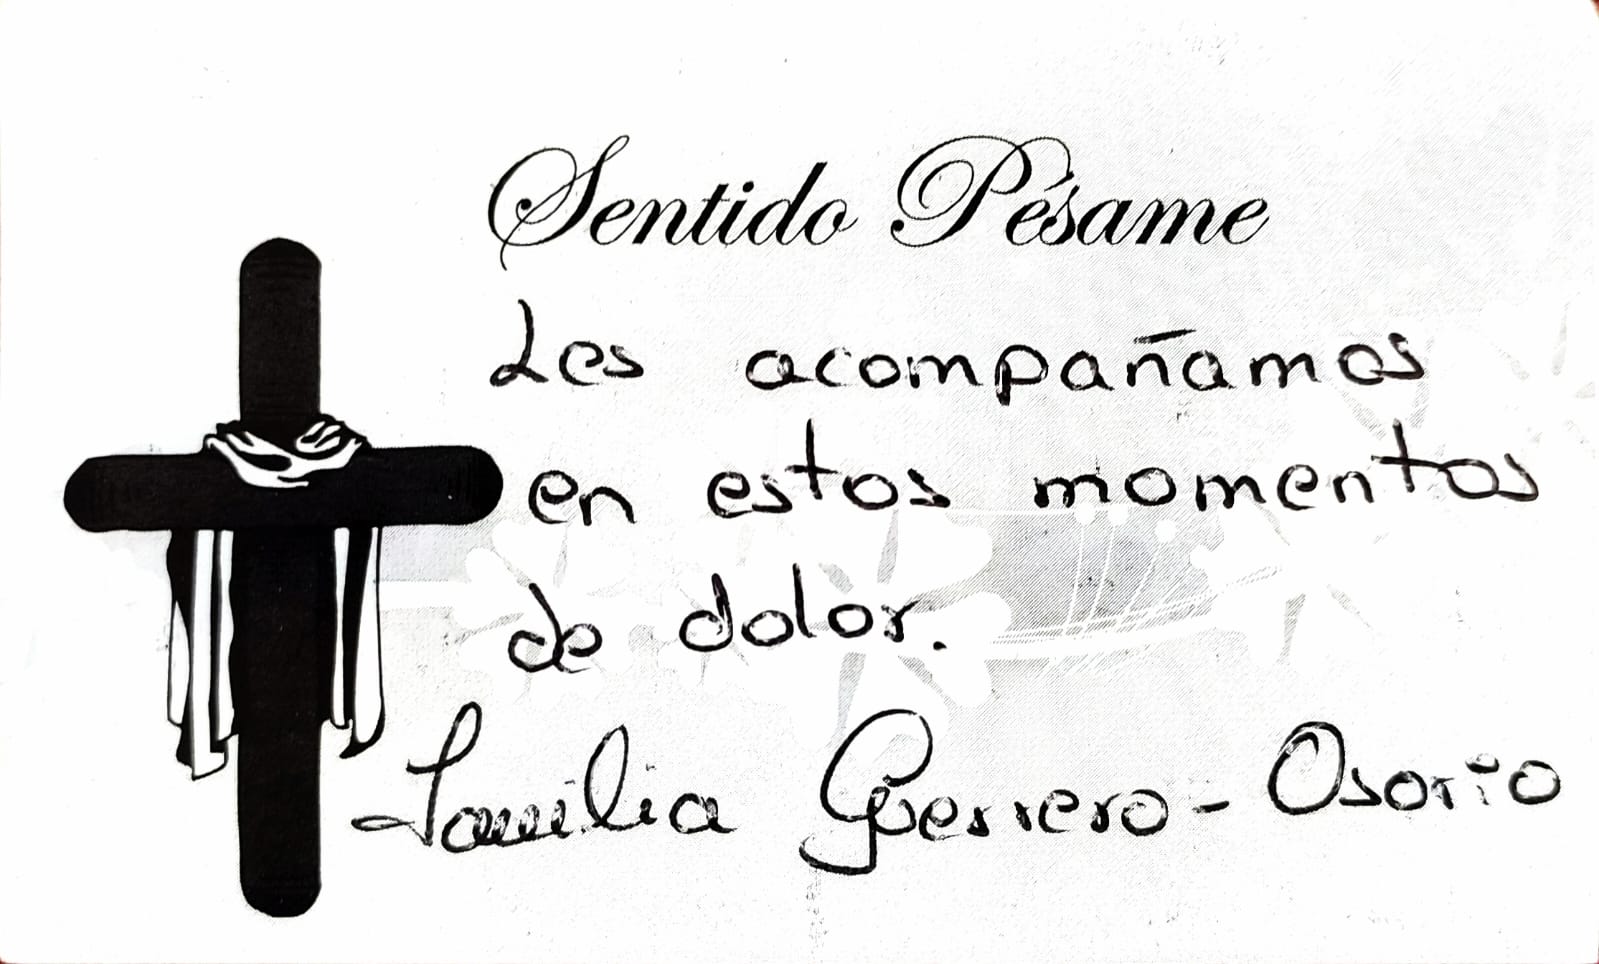 Sentido Pésame
Les acompañamos
en estos momentos
de dolor.
Familia Guerrero - Osorio